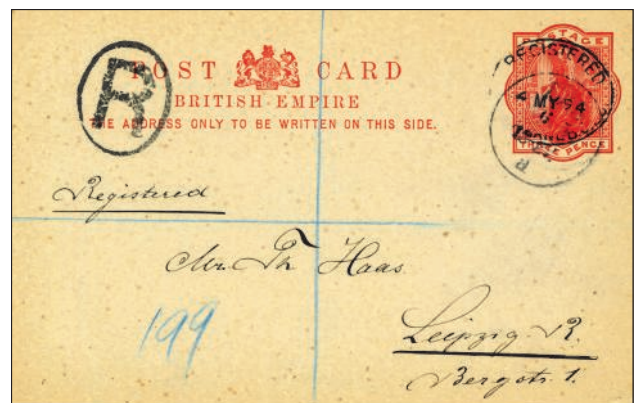 POST CARD
BRITISH EMPIRE
THE ADDRESS ONLY TO BE WRITTEN ON THIS SIDE.
R
POSTAGE
THREE PENCE
REGISTERED
MY 94
Registered
Mr. Th Haas
Leipzig. R.
Bergstr. 1.
199